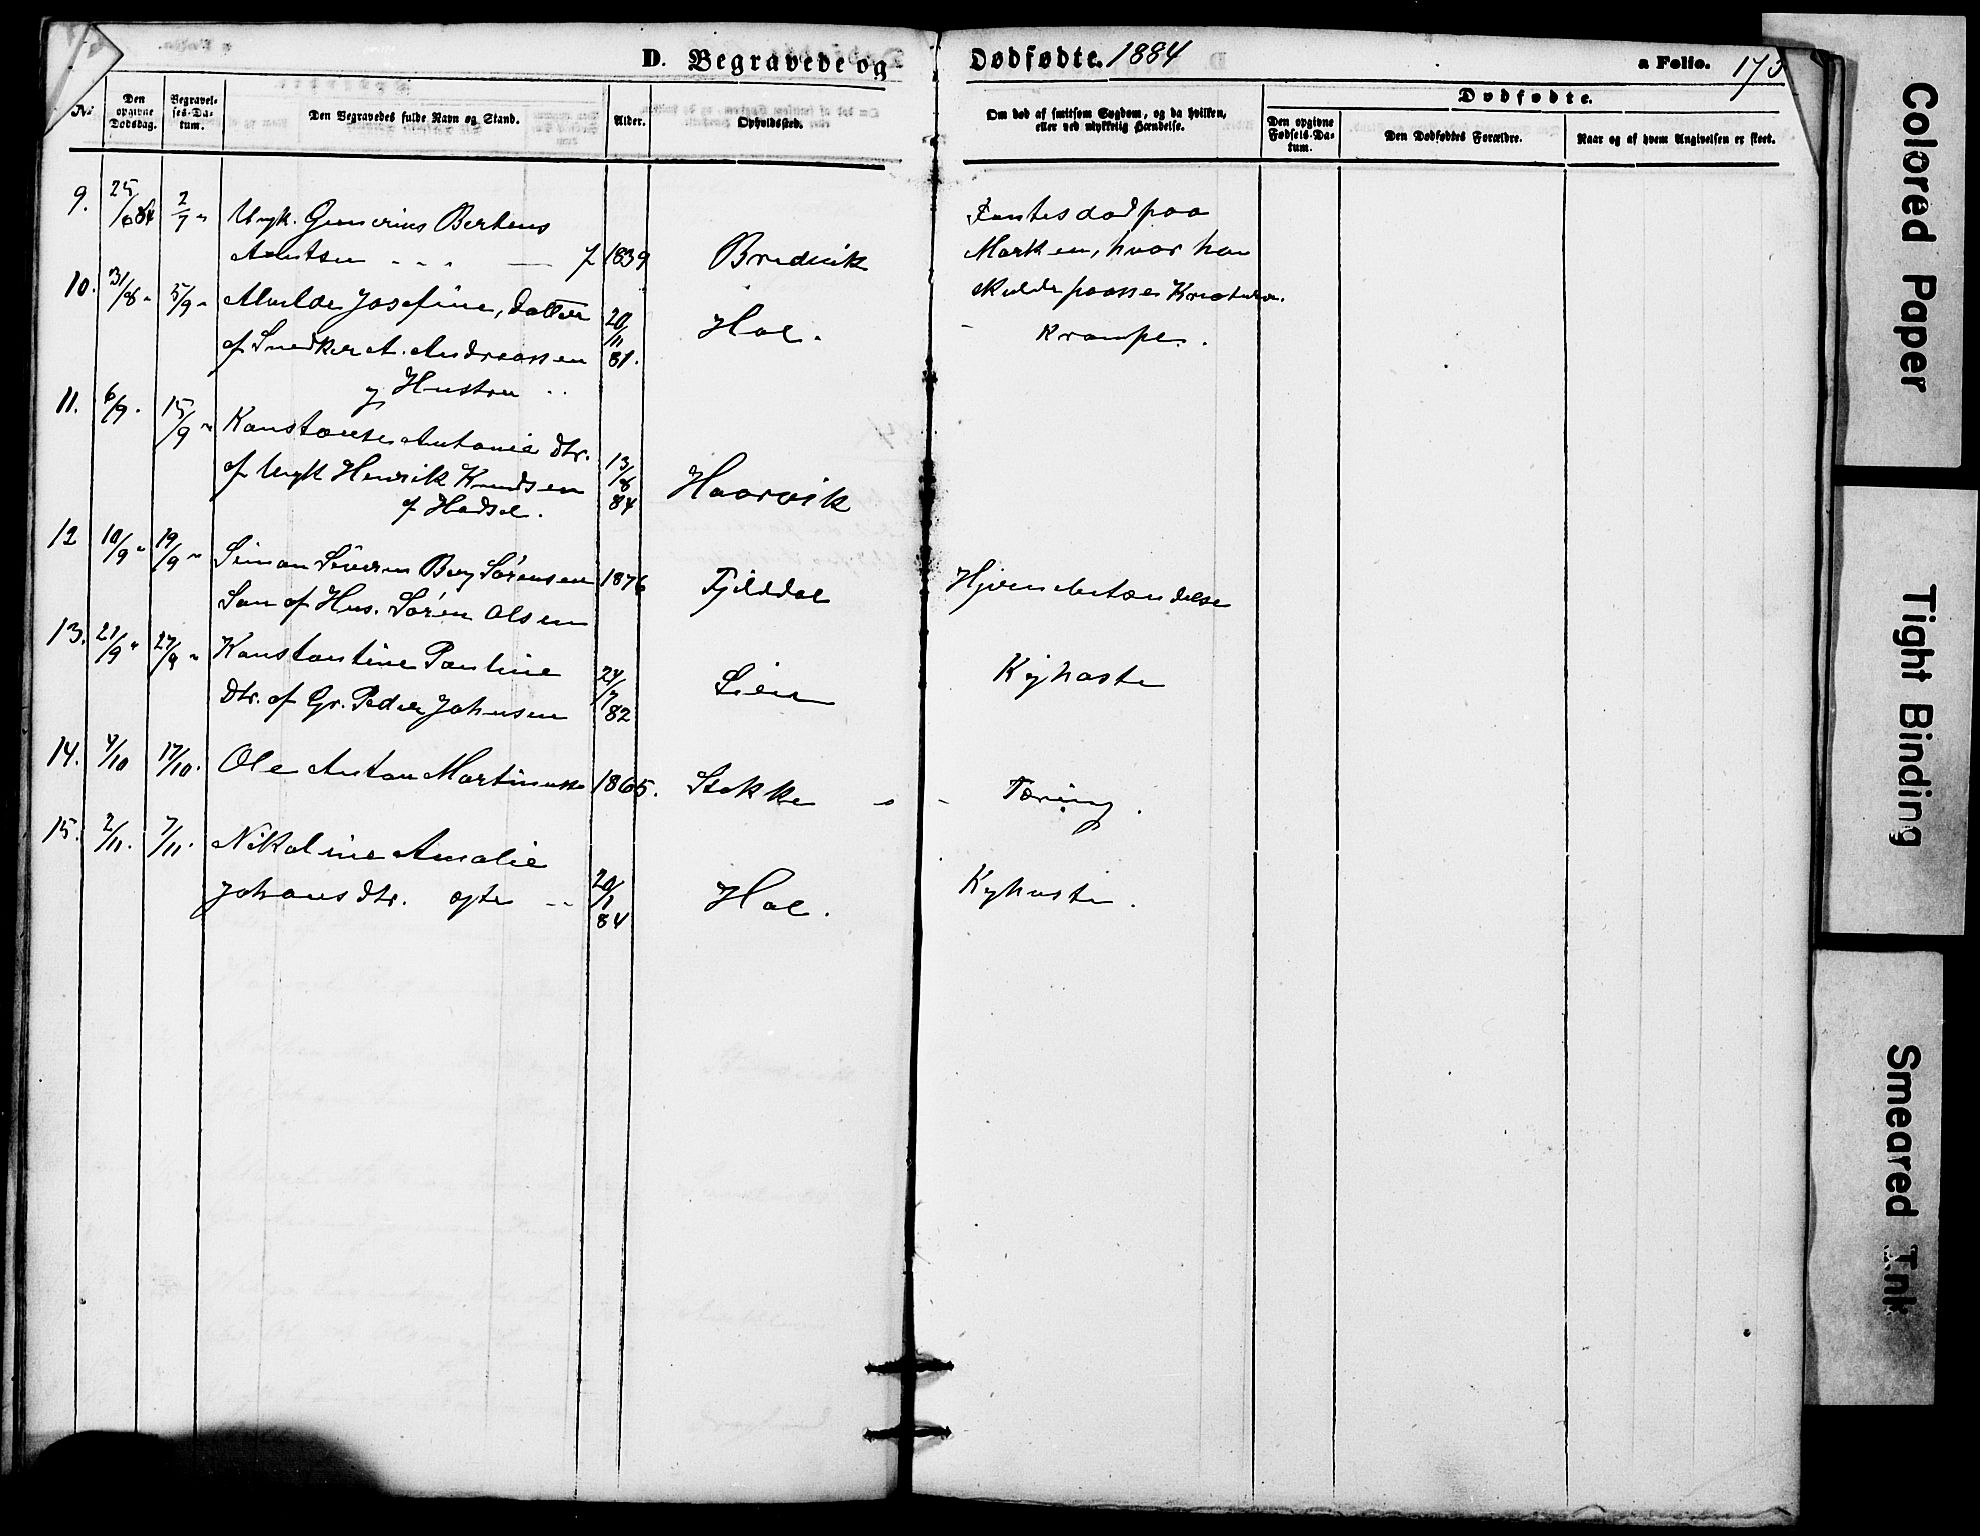 D. Begravede og Dødfødte. 1884 a Folio. 173
No
Den opgivne Dødsdag.
Begravelses-Datum.
Den Begravedes fulde Navn og Stand.
Alder.
Opholdssted.
Om død af smitsom Sygdom, og da hvilken, eller ved ulykkelig Hændelse.
Dødfødte.
Den opgivne Fødsels-Datum.
Den Dødfødtes Forældre.
Naar og af hvem Angivelsen er skeet.
9. 25/6 84 2/7 " Ungk. Gunerius Bertens Fantes død paa
Arntsen 1839 Bredvik Marken, hvor han
skulde passe Kreature.
10. 31/8 " 5/9 " Alvilde Josefine, Datter
af Snedker A. Andreassen 20/11 81. Hol. Krampe.
og Hustru
11. 6/9. 15/9 " Konstanse Antonie dtr.
af Ungk Henrik Knudsen 13/8 84 Haarvik
af Hadsel.
12 10/9 " 19/9 " Simon Severin Berg Sørensen 1876 Fjelddal Hjernebetændelse
Søn af Hus. Søren Olsen
13. 21/9 " 27/9 " Konstantine Pauline
dtr. af Gr. Peder Johnsen 24/7 82 Lien Kighoste
14. 4/10 17/10. Ole Anton Martinussen 1865. Stokke Tæring.
15. 2/11. 7/11. Nikoline Amalie
Johansdtr. ægte 20/1 84 Hol. Kighoste.
Colored Paper
Tight Binding
Smeared Ink